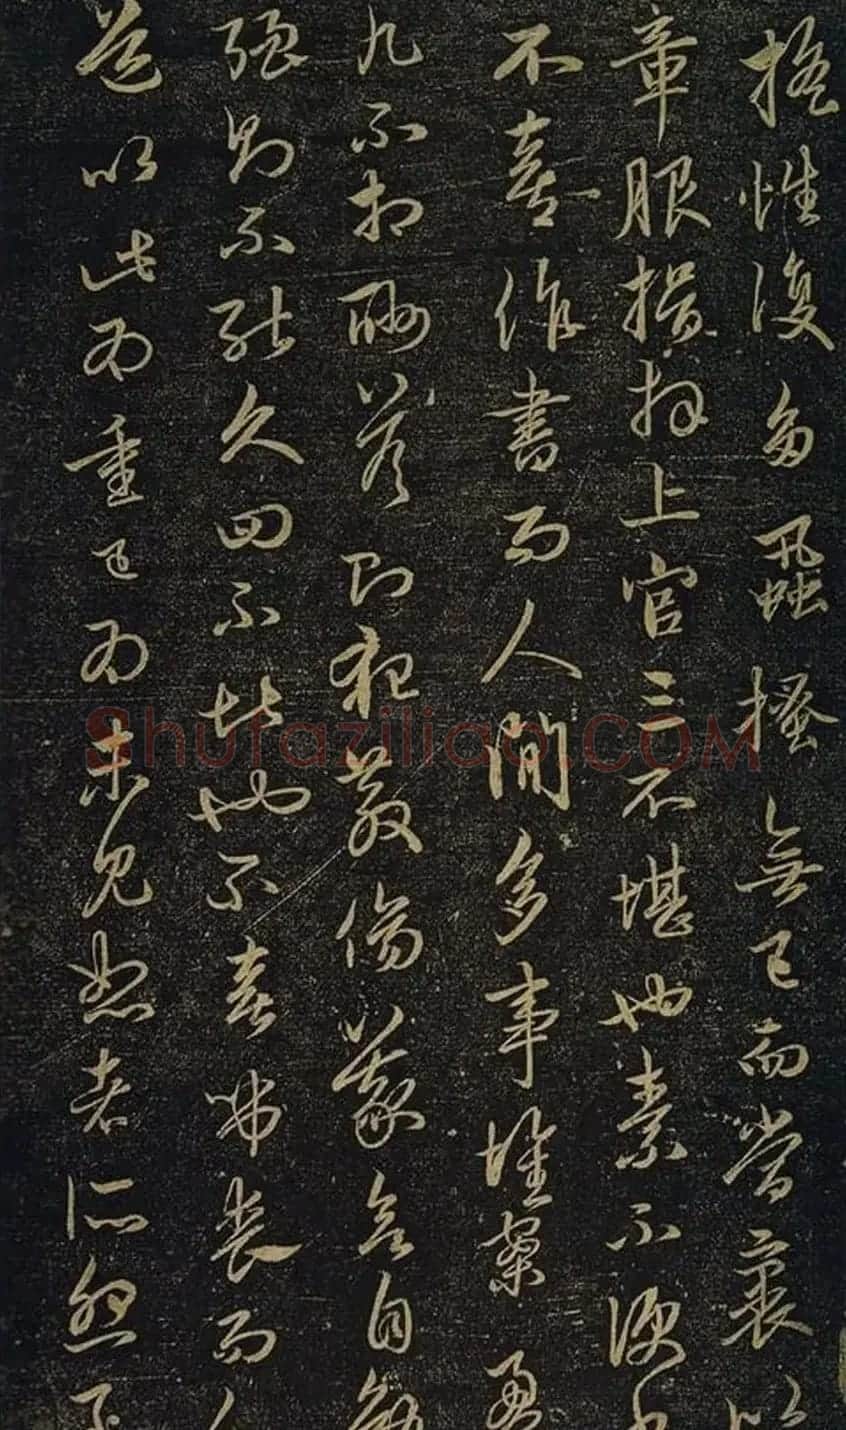 搖性復多蝨搔無已而當裹以
章服揖拜上官三不堪也素不便書
不喜作書而人間多事堆案盈
几不相酬答即犯教傷義欲自勉
強則不能久四不堪也不喜弔喪而人
道以此為重已為未見恕者所怨至
Shufaziliao.COM